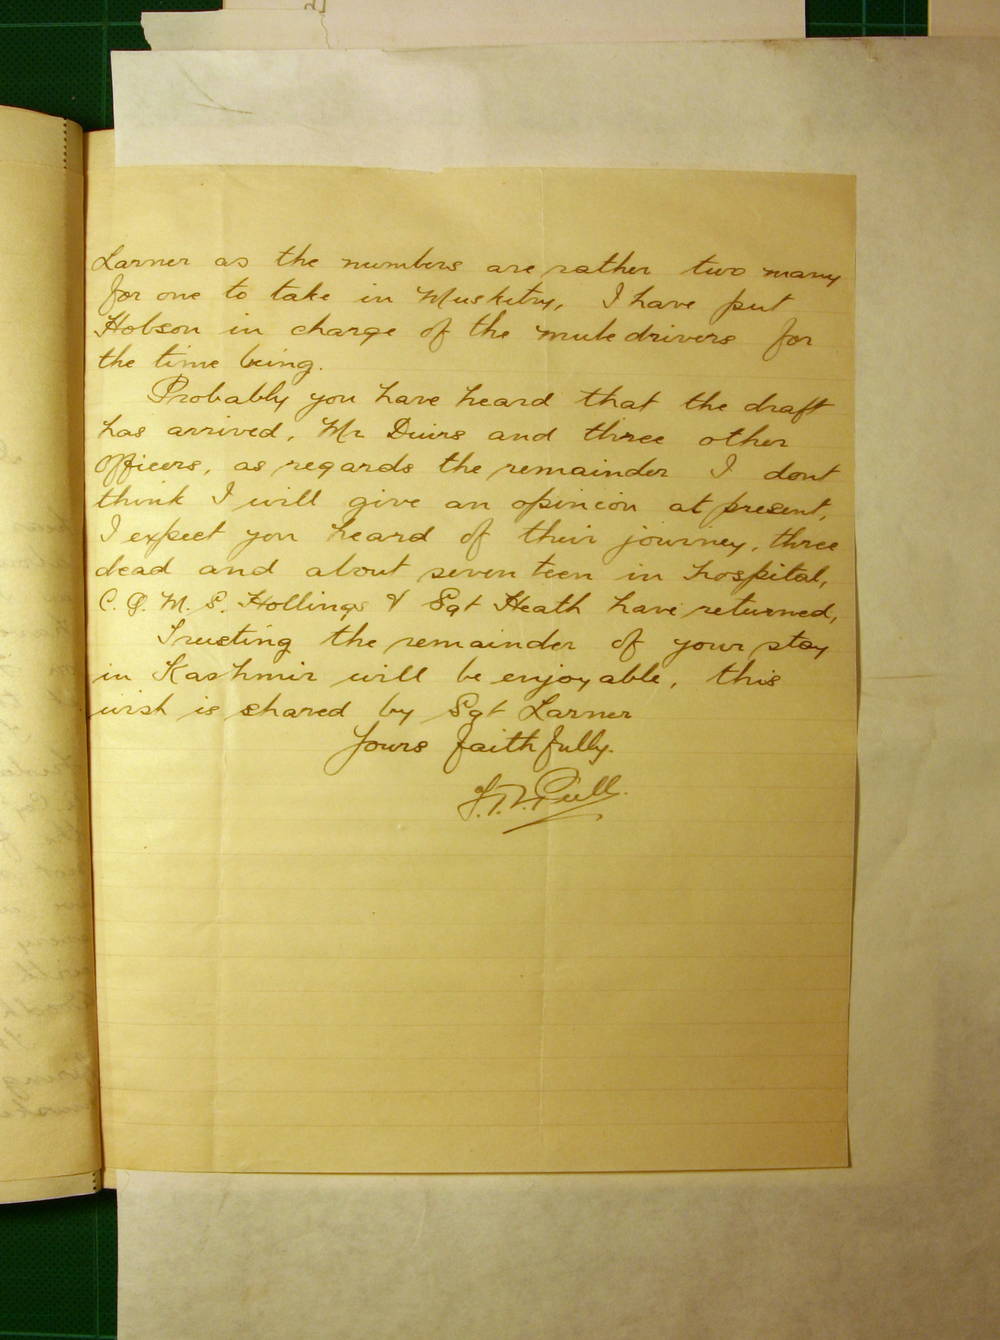 Larner as the numbers are rather two many
for one to take in Musketry, I have put
Hobson in charge of the mule drivers for
the time being.
Probably you have heard that the draft
has arrived, Mr and three other
Officers, as regards the remainder I dont
think I will give an opinion at present,
I expect you heard of their journey, three
dead and about seven teen in hospital,
C. Q. M. S. Hollings & Sgt Heath have returned,
Trusting the remainder of your stay
in Kashmir will be enjoyable, this
wish is shared by Sgt Larner
Yours faithfully.
Pull.